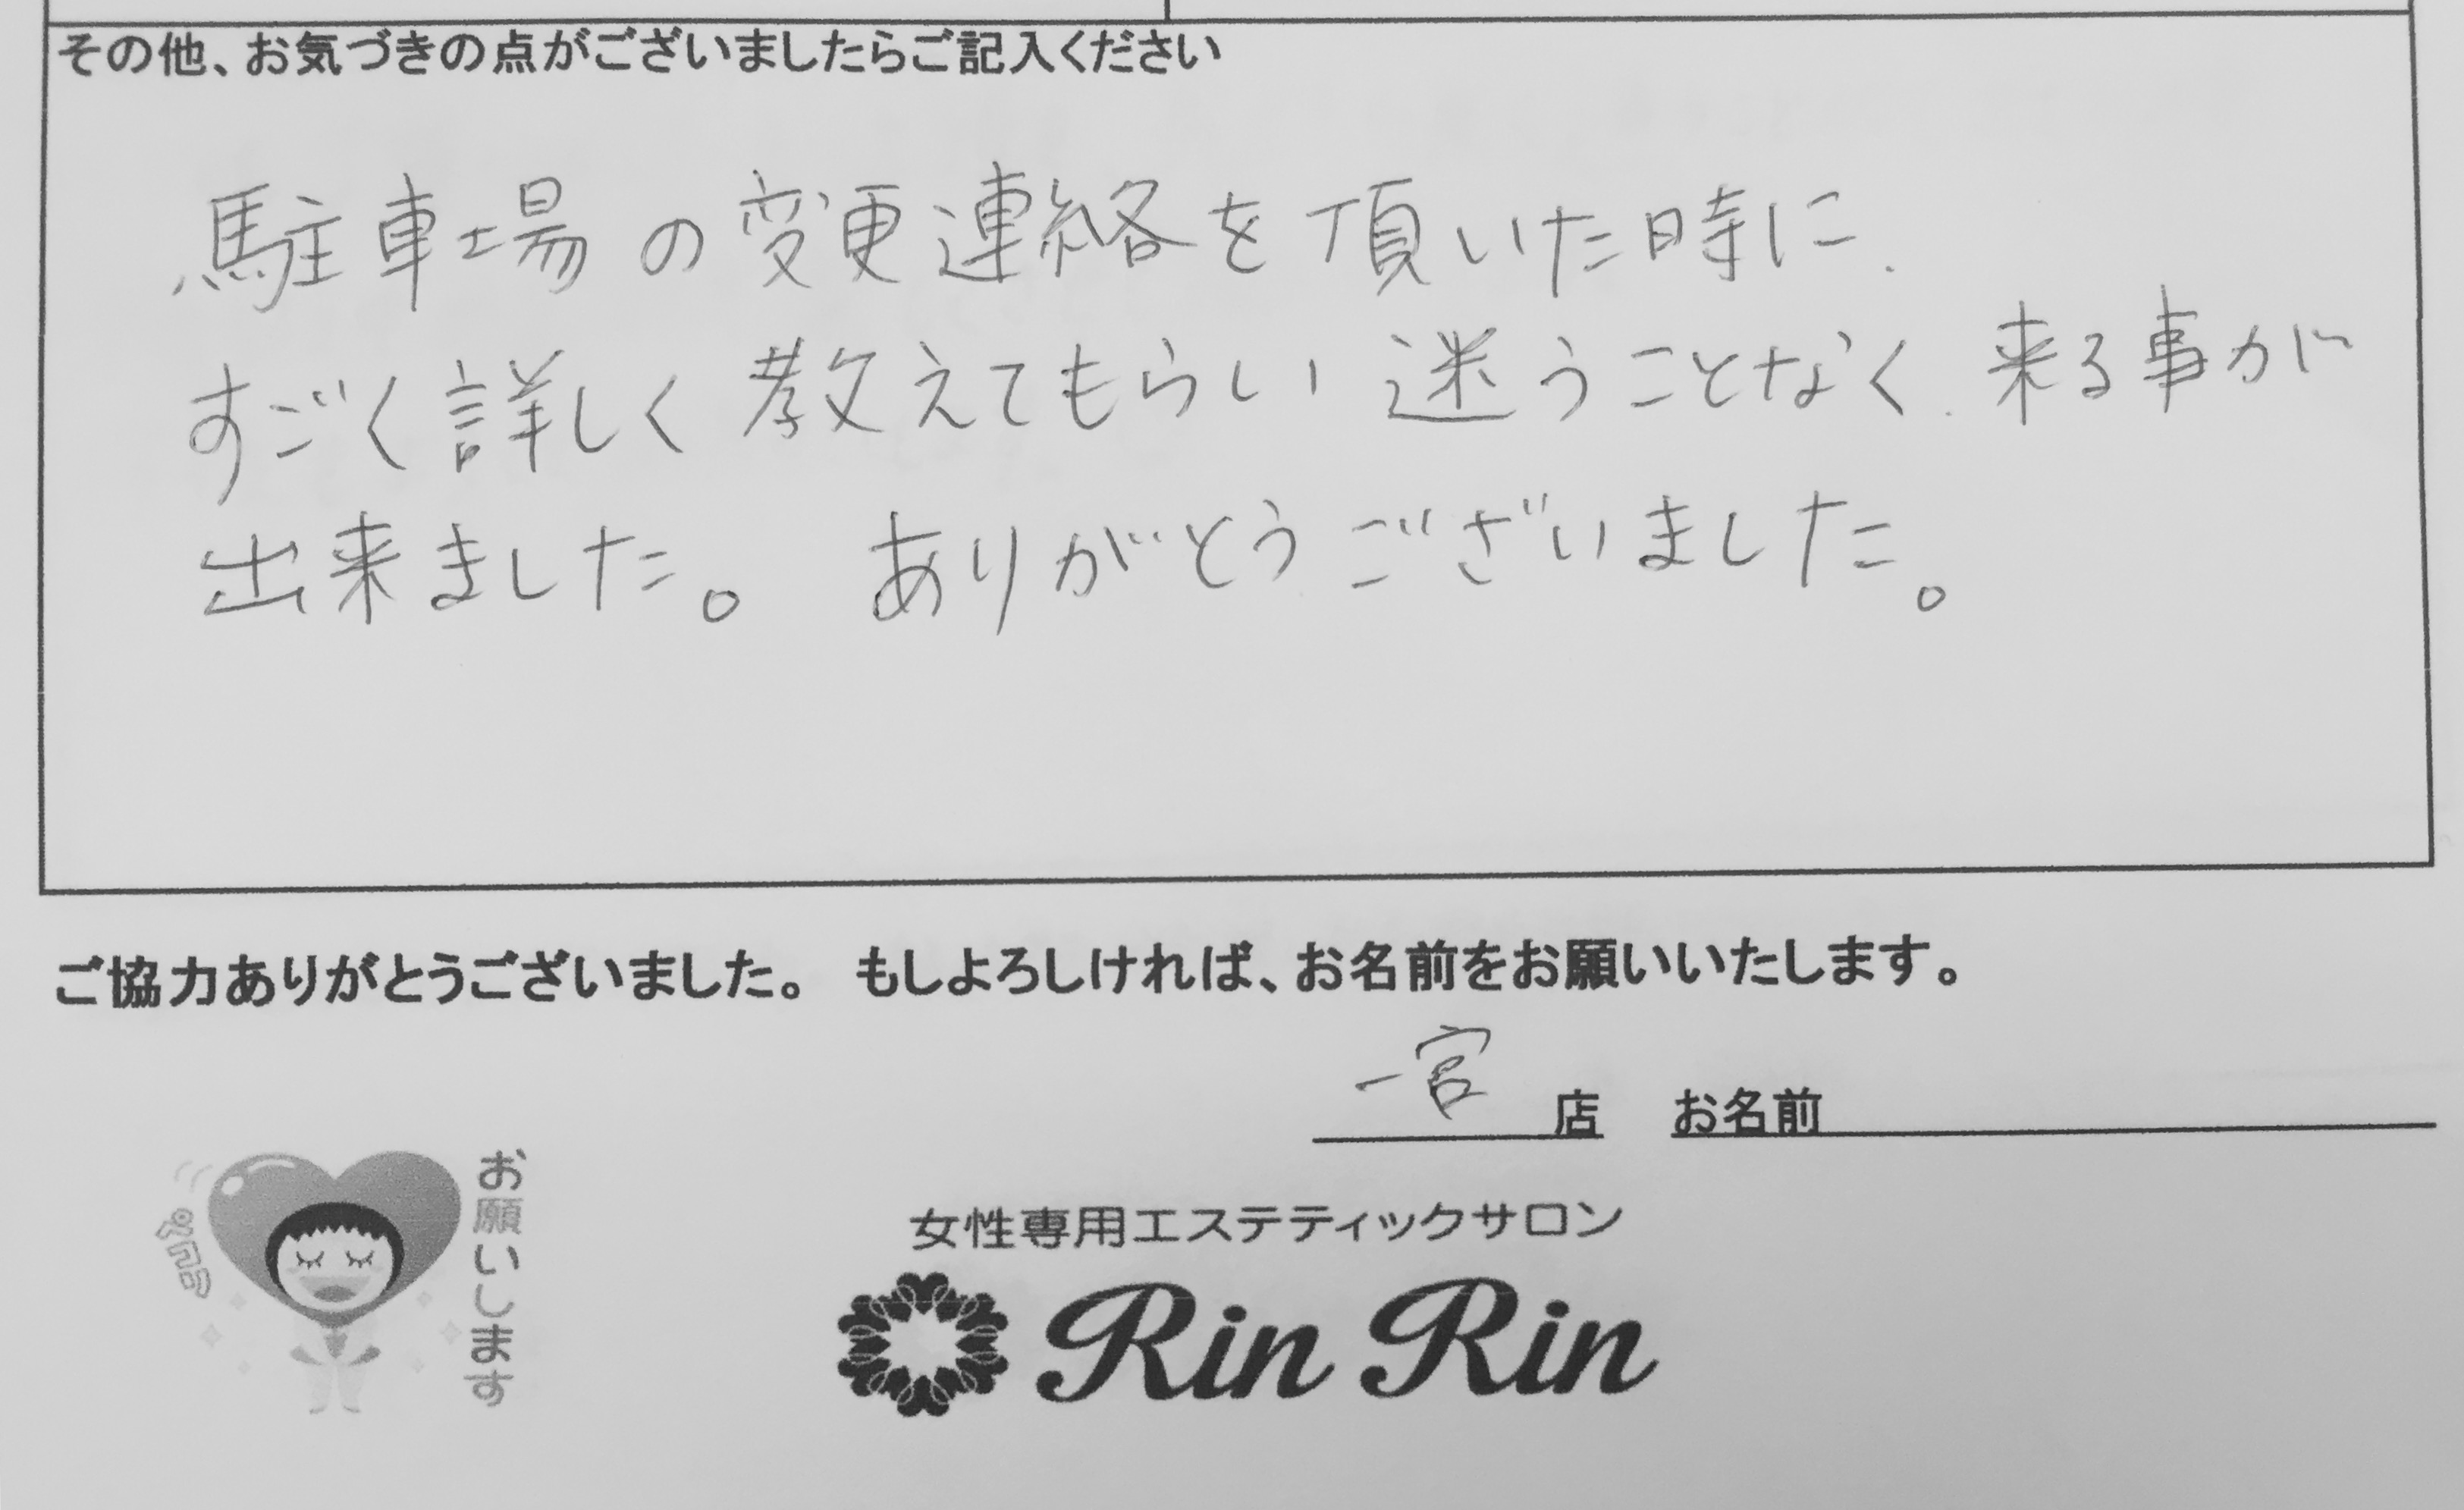 その他、お気づきの点がございましたらご記入ください
駐車場の変更連絡を頂いた時に、
すごく詳しく教えてもらい迷うことなく、来る事が
出来ました。 ありがとうございました。
ご協力ありがとうございました。 もしよろしければ、お名前をお願いいたします。
一宮 店 お名前
お願いします
ペコリ
女性専用エステティックサロン
Rin Rin